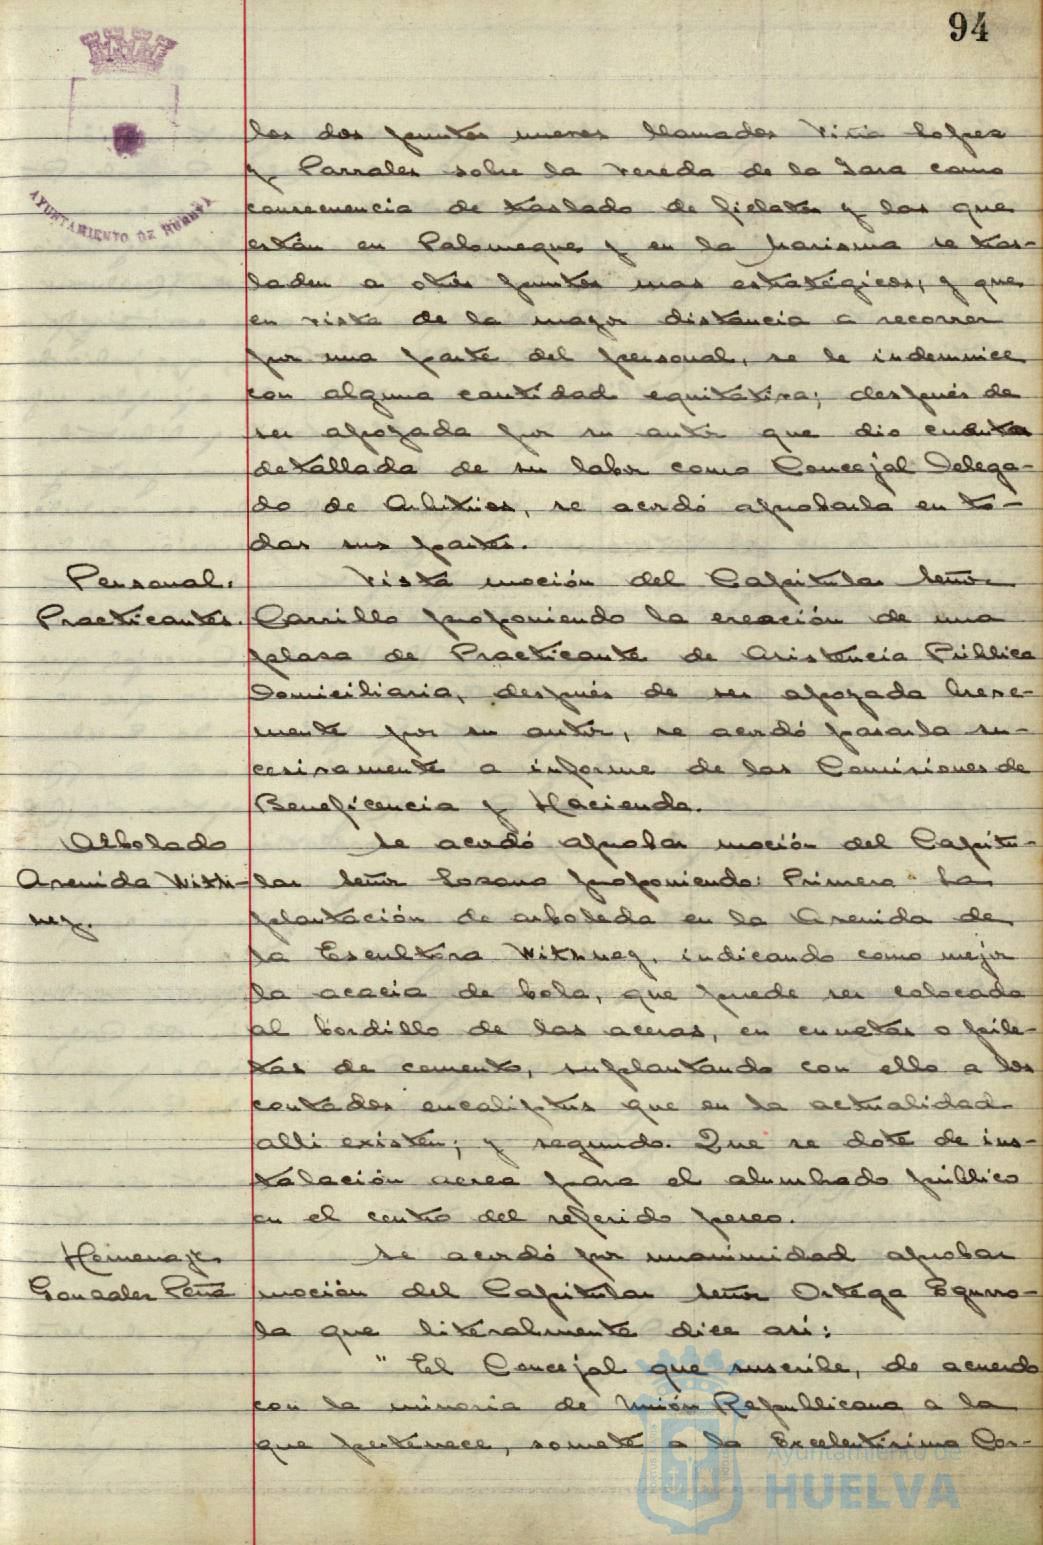 94
AYUNTAMIENTO DE HUELVA
los dos puntos nuevos llamados Viña Lopez
y Parrales sobre la vereda de la Jara como
consecuencia de traslado de fielatos y los que
están en Palomeque y en la Marisma se tras-
laden a otros puntos mas estratégicos, y que
en vista de la mayor distancia a recorrer
por una parte del personal, se le indemnice
con alguna cantidad equitativa; después de
ser apoyada por su autor que dio cuenta
detallada de su labor como Concejal Delega-
do de Arbitrios, se acordó aprobarla en to-
das sus partes.
Personal.
Practicantes.
Vista moción del Capitular Señor
Carrillo proponiendo la creación de una
plaza de Practicante de Asistencia Pública
Domiciliaria, después de ser apoyada breve-
mente por su autor, se acordó pasarla su-
cesivamente a informe de las Comisiones de
Beneficencia y Hacienda.
Arbolado
Avenida Withi-
ney.
Se acordó aprobar moción del Capitu-
lar Señor Lozano proponiendo: Primero La
plantación de arboleda en la Avenida de
la Escultora Withney, indicando como mejor
la acacia de bola, que puede ser colocada
al bordillo de las aceras, en cunetas o pile-
tas de cemento, suplantando con ello a los
contados eucaliptus que en la actualidad
alli existen; y segundo. Que se dote de ins-
talación aerea para el alumbrado público
en el centro del referido paseo.
Homenaje
Gonzalez Peña
Se acordó por unanimidad aprobar
moción del Capitular Señor Ortega Eguro-
la que literalmente dice así:
" El Concejal que suscribe, de acuerdo
con la minoria de Unión Republicana a la
que pertenece, somete a la Excelentisima Cor-
Ayuntamiento de
HUELVA